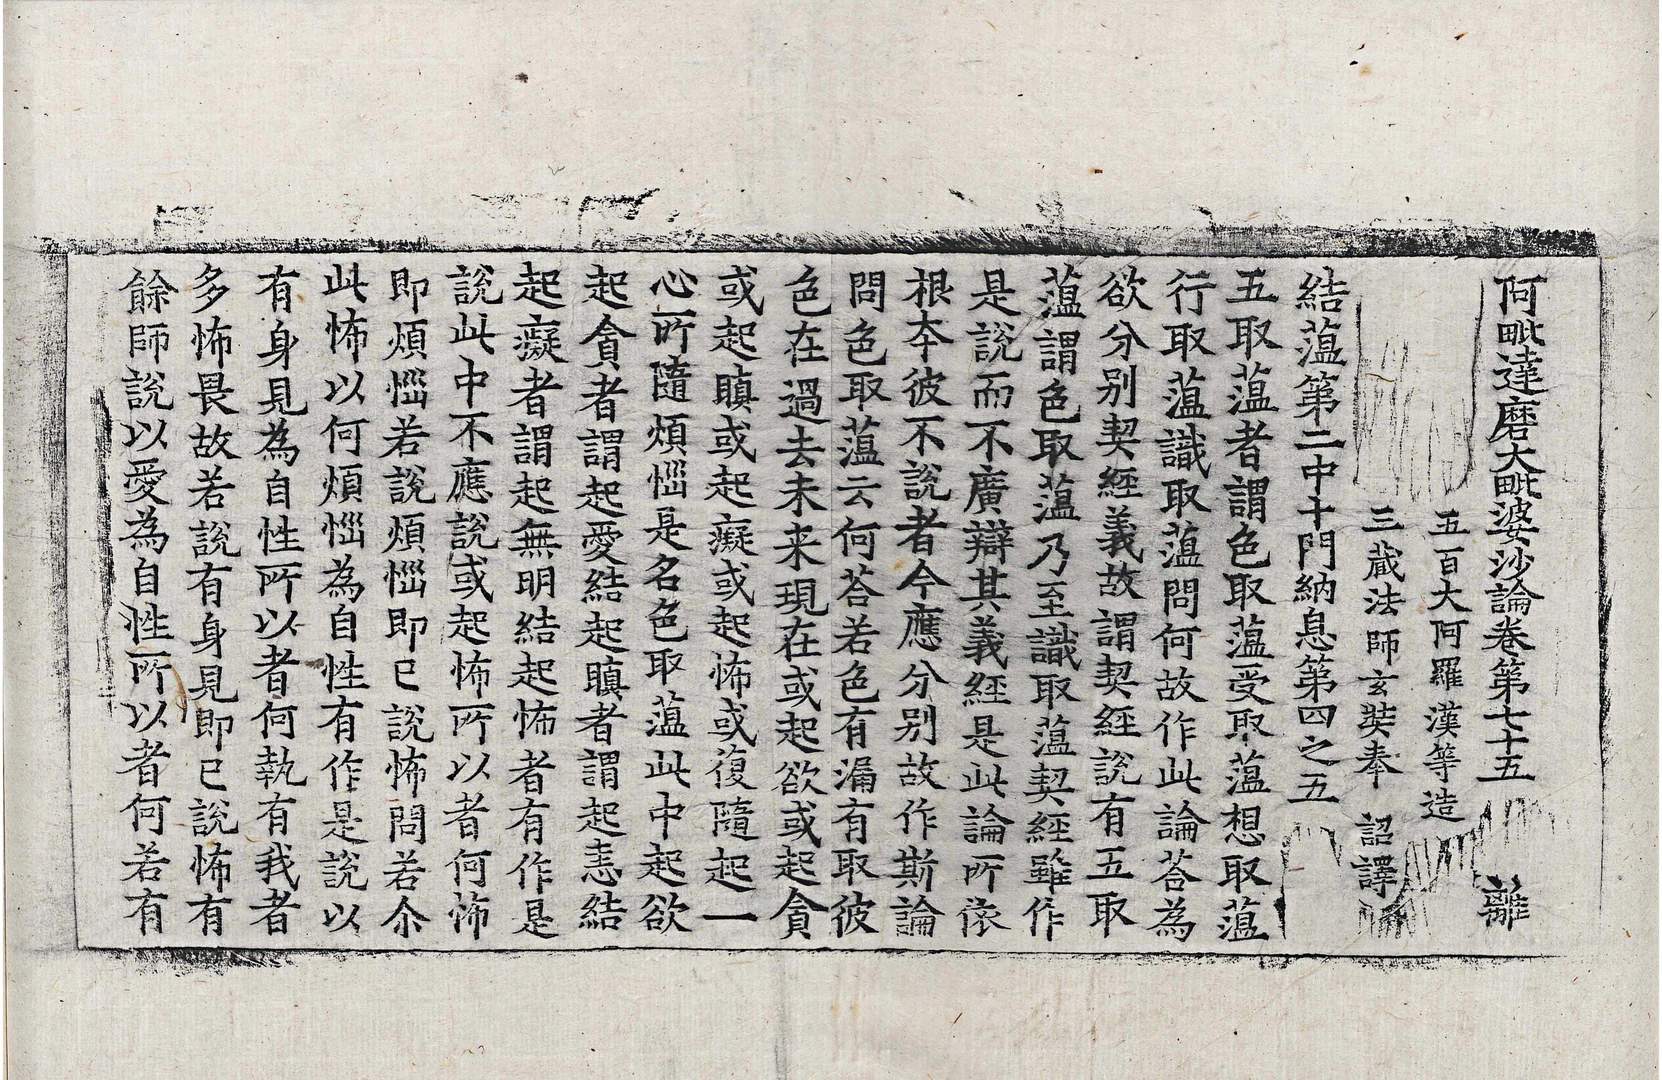 阿毗達磨大毗婆沙論卷第七十五　離
五百大阿羅漢等造
三藏法師玄奘奉　詔譯
結蘊第二中十門納息第四之五
五取蘊者謂色取蘊受取蘊想取蘊
行取蘊識取蘊問何故作此論荅為
欲分別契經義故謂契經說有五取
蘊謂色取蘊乃至識取蘊契經雖作
是說而不廣辯其義經是此論所依
根本彼不說者今應分別故作斯論
問色取蘊云何荅若色有漏有取彼
色在過去未来現在或起欲或起貪
或起瞋或起癡或起怖或復隨起一
心所隨煩惱是名色取蘊此中起欲
起貪者謂起愛結起瞋者謂起恚結
起癡者謂起無明結起怖者有作是
說此中不應說或起怖所以者何怖
即煩惱若說煩惱即已說怖問若尒
此怖以何煩惱為自性有作是說以
有身見為自性所以者何執有我者
多怖畏故若說有身見即已說怖有
餘師說以愛為自性所以者何若有